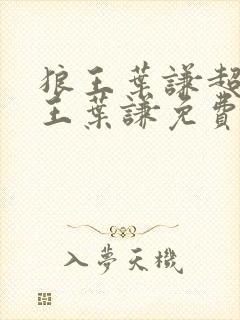 狼王葉謙超
王葉謙免費
入夢天機